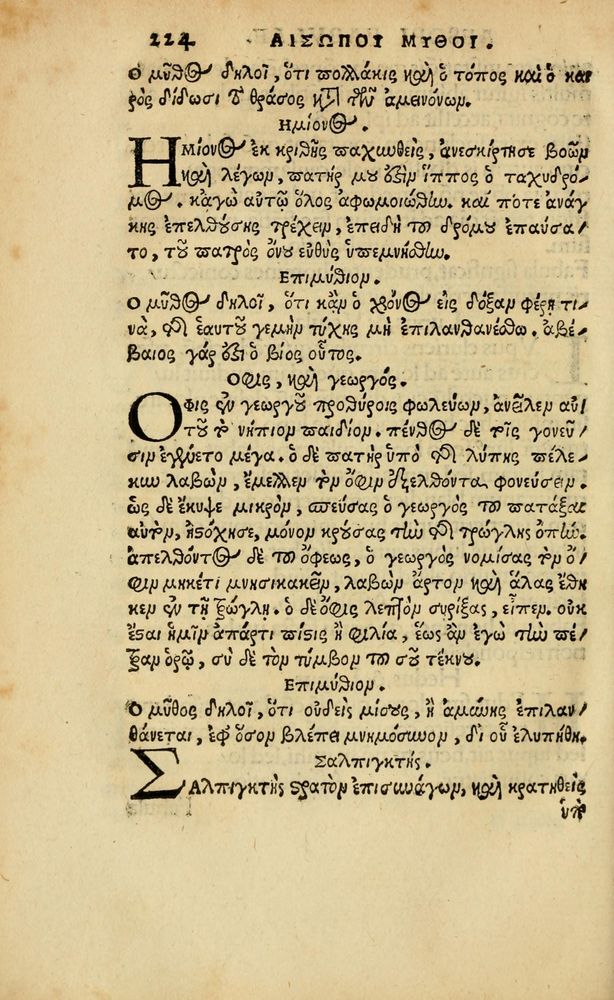 224 ΑΙΣΩΠΟΥ ΜΥΘΟΙ.
Ο μῦθος δηλοῖ, ὅτι πολλάκις καὶ ὁ τόπος καὶ ὁ και
ρὸς δίδωσι τὸ θράσος κατὰ τῶν ἀμεινόνων.
Ημίονος.
ΗΜίονος ἐκ κριθῆς παχυνθεὶς, ἀνεσκίρτησε βοῶν
καὶ λέγων, πατήρ μου ἐστὶν ἵππος ὁ ταχυδρό/
μος. κἀγὼ αὐτῷ ὅλος ἀφωμοιώθην. καί ποτε ἀνάγ
κης ἐπελθούσης τρέχειν, ἐπειδὴ τοῦ δρόμου ἐπαύσα/
το, τοῦ πατρὸς ὄνου εὐθὺς ὑπεμνήσθην.
Επιμύθιον.
Ο μῦθος δηλοῖ, ὅτι κἂν ὁ χρόνος εἰς δόξαν φέρῃ τι/
νὰ, τῆς ἑαυτοῦ γεμὴν τύχης μὴ ἐπιλανθανέσθω. ἀβέ/
βαιος γάρ ἐστι ὁ βίος οὗτος.
Οφις, καὶ γεωργός.
ΟΦις ἐν γεωργοῦ προθύροις φωλεύων, ἀνεῖλεν αὐ/
τοῦ τὸ νήπιον παιδίον. πένθος δὲ τοῖς γονεῦ/
σιν ἐγένετο μέγα. ὁ δὲ πατὴρ ὑπὸ τῆς λύπης πέλε/
κυν λαβὼν, ἔμελλεν τὸν ὄφιν ἐξελθόντα φονεύσειν.
ὡς δὲ ἔκυψε μικρὸν, σπεύσας ὁ γεωργὸς τοῦ πατάξαι
αὐτὸν, ἠστόχησε, μόνον κρούσας τὴν τῆς τρώγλης ὀπήν.
ἀπελθόντος δὲ τοῦ ὄφεως, ὁ γεωργὸς νομίσας τὸν ὄ/
φιν μηκέτι μνησικακεῖν, λαβὼν ἄρτον καὶ ἅλας ἔθη
κεν ἐν τῇ τρώγλῃ. ὁ δὲ ὄφις λεπτὸν συρίξας, εἶπεν. οὐκ
ἔσται ἡμῖν ἀπάρτι πίστις ἢ φιλία, ἕως ἂν ἐγὼ τὴν πέ/
τραν ὁρῶ, σὺ δὲ τὸν τύμβον τοῦ σοῦ τέκνου.
Επιμύθιον.
Ο μῦθος δηλοῖ, ὅτι οὐδεὶς μίσους, ἢ ἀμύνης ἐπιλαν/
θάνεται, ἐφ' ὅσον βλέπει μνημόσυνον, δι οὗ ἐλυπήθη.
Σαλπιγκτής.
ΣΑλπιγκτὴς στρατὸν ἐπισυνάγων, καὶ κρατηθεὶς
ὑπὸ